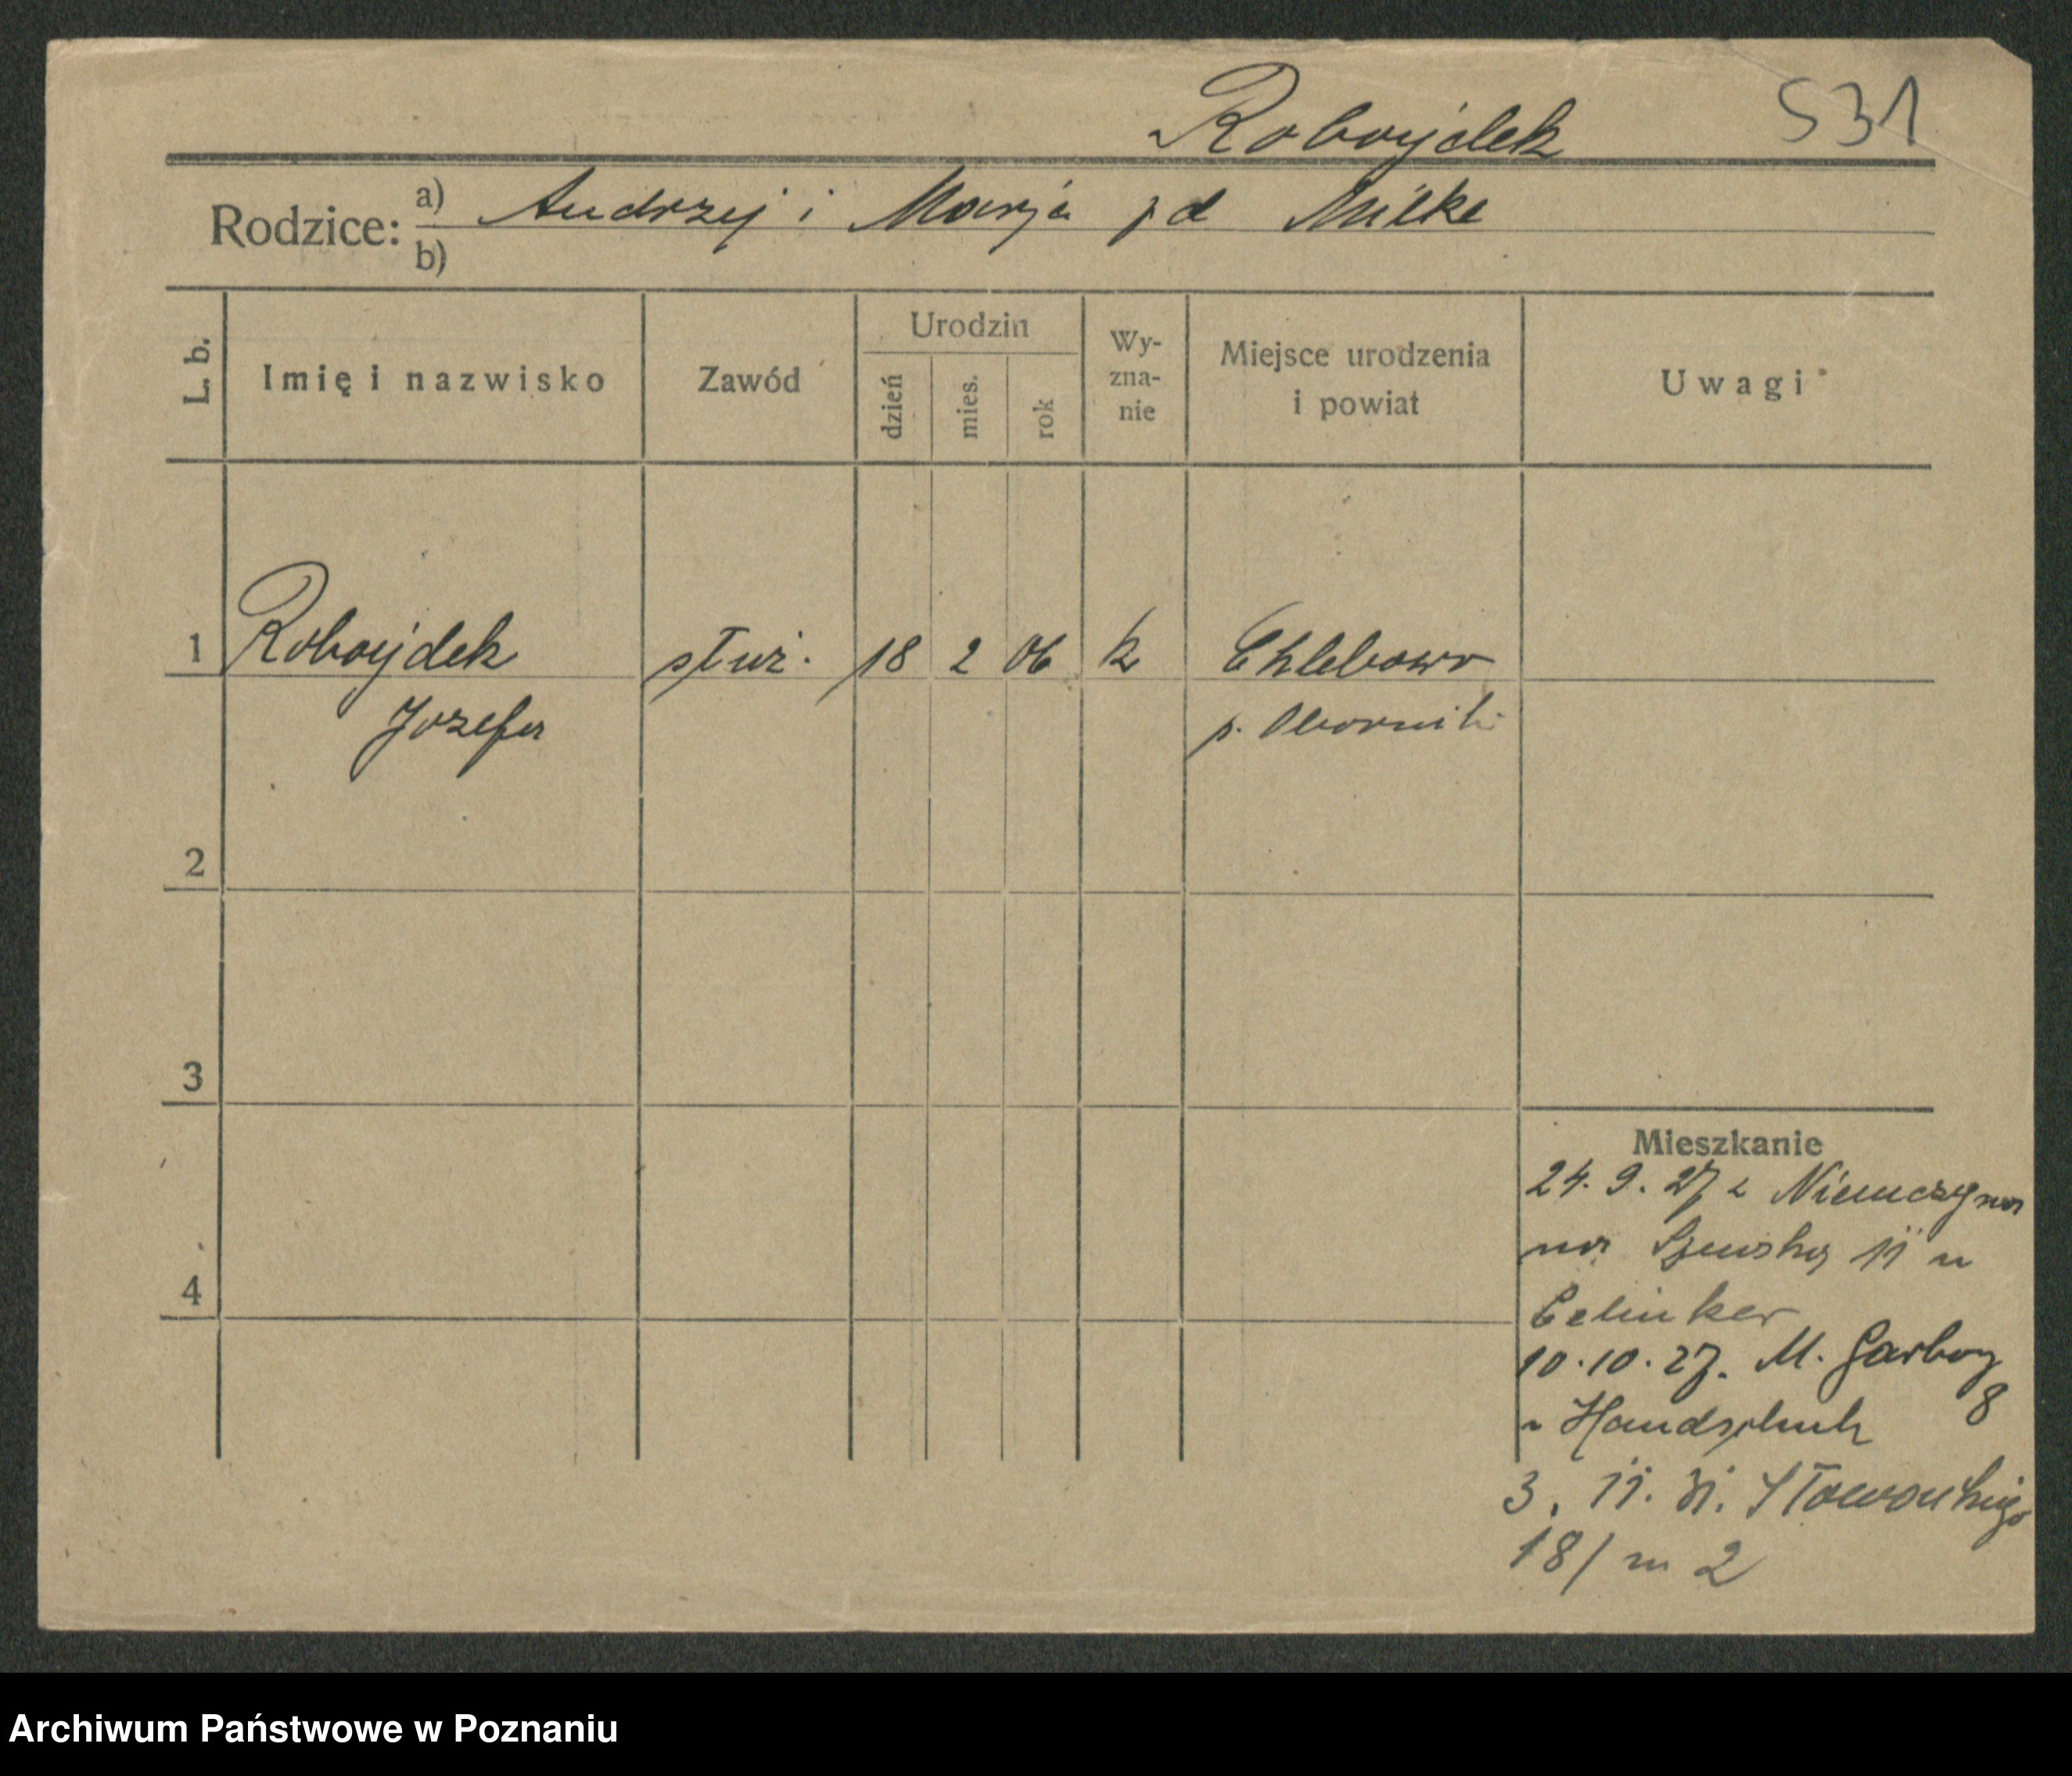 Robojdek 531
Rodzice: a) Andrzej i Marja pd Milke
b)
L. b. Imię i nazwisko Zawód Urodzin dzień mies. rok Wy-zna-nie Miejsce urodzenia i powiat Uwagi
1 Robojdek służ. 18 2 06 k Chlebowo
Jozefa p. Oborniki
2
3
Mieszkanie
24. 9. 27 z Niemczyna
na Szewską 11 u
4
Celinker
10. 10. 27. M. Garbary
8
u Handschuh
3. 11. 31. Słowackiego
18/ m 2
Archiwum Państwowe w Poznaniu